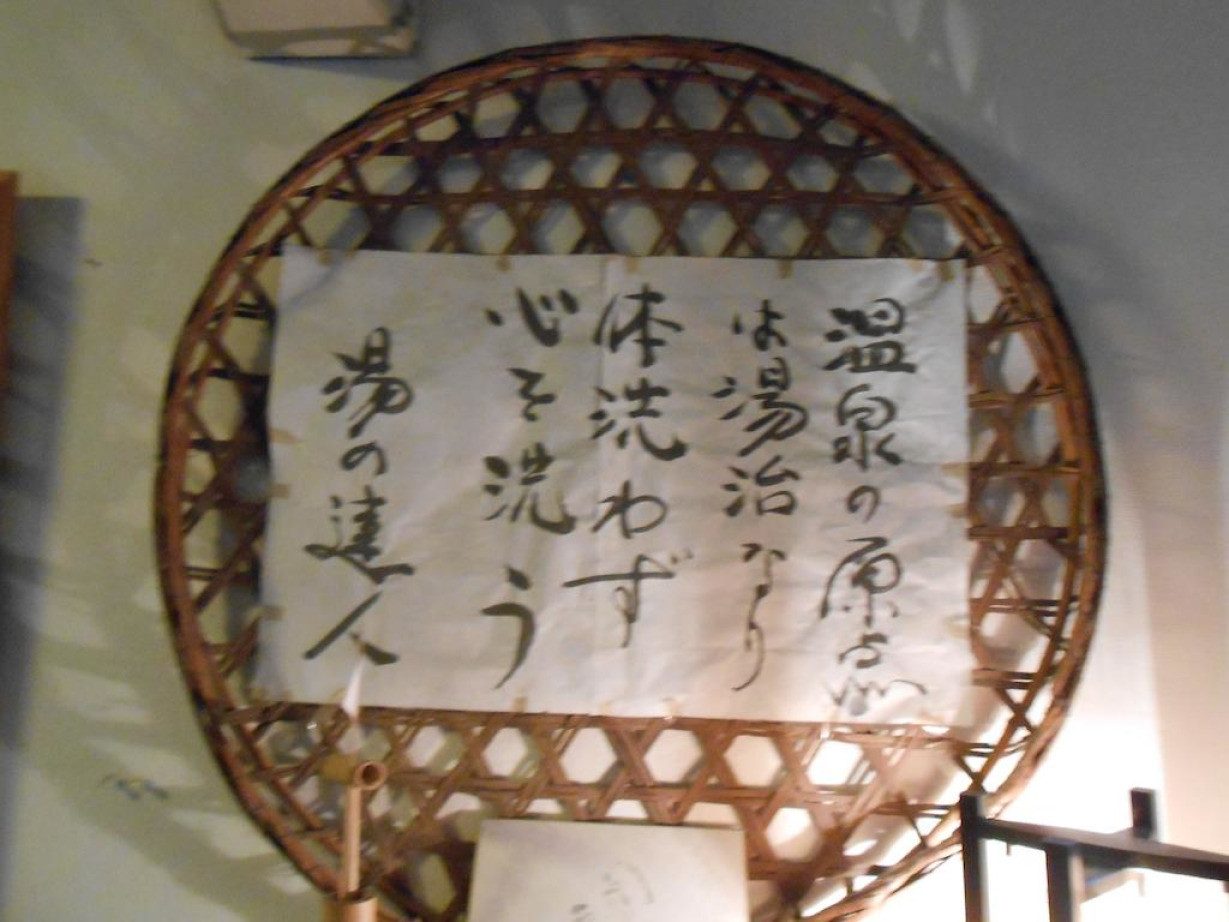 温泉の原点
は湯治なり
体洗わず
心を洗う
湯の達人